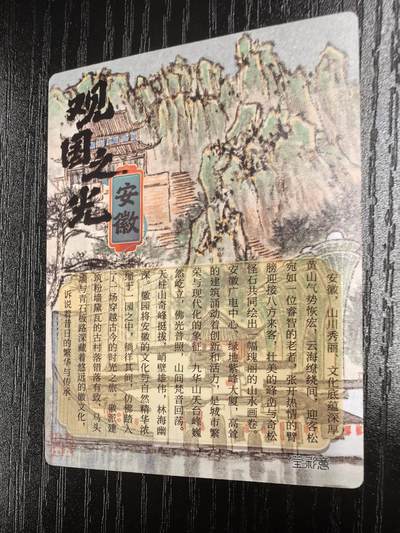 观国之光
安徽
安徽，山川秀丽，文化底蕴深厚。
黄山气势恢宏，云海缭绕间，迎客松
宛如一位睿智的老者，张开热情的臂
膀迎接八方来客，壮美的峰峦与奇松
怪石共同绘出一幅瑰丽的山水画卷。
安徽广电中心、绿地紫峰大厦，高耸
的建筑涌动着创新和活力，是城市繁
荣与现代化的象征。九华山天台峰巍
然屹立，佛光普照，山间梵音回荡。
天柱山奇峰挺拔，峭壁雄伟，林海幽
深。徽园将安徽的文化与自然精华浓
缩于一园之中，徜徉其间，仿佛踏入
了一场穿越古今的时光之旅。徽派建
筑粉墙黛瓦的古村落错落有致，马头
墙与青石板路深藏着悠远的徽文化，
诉说着昔日的繁华与传承。